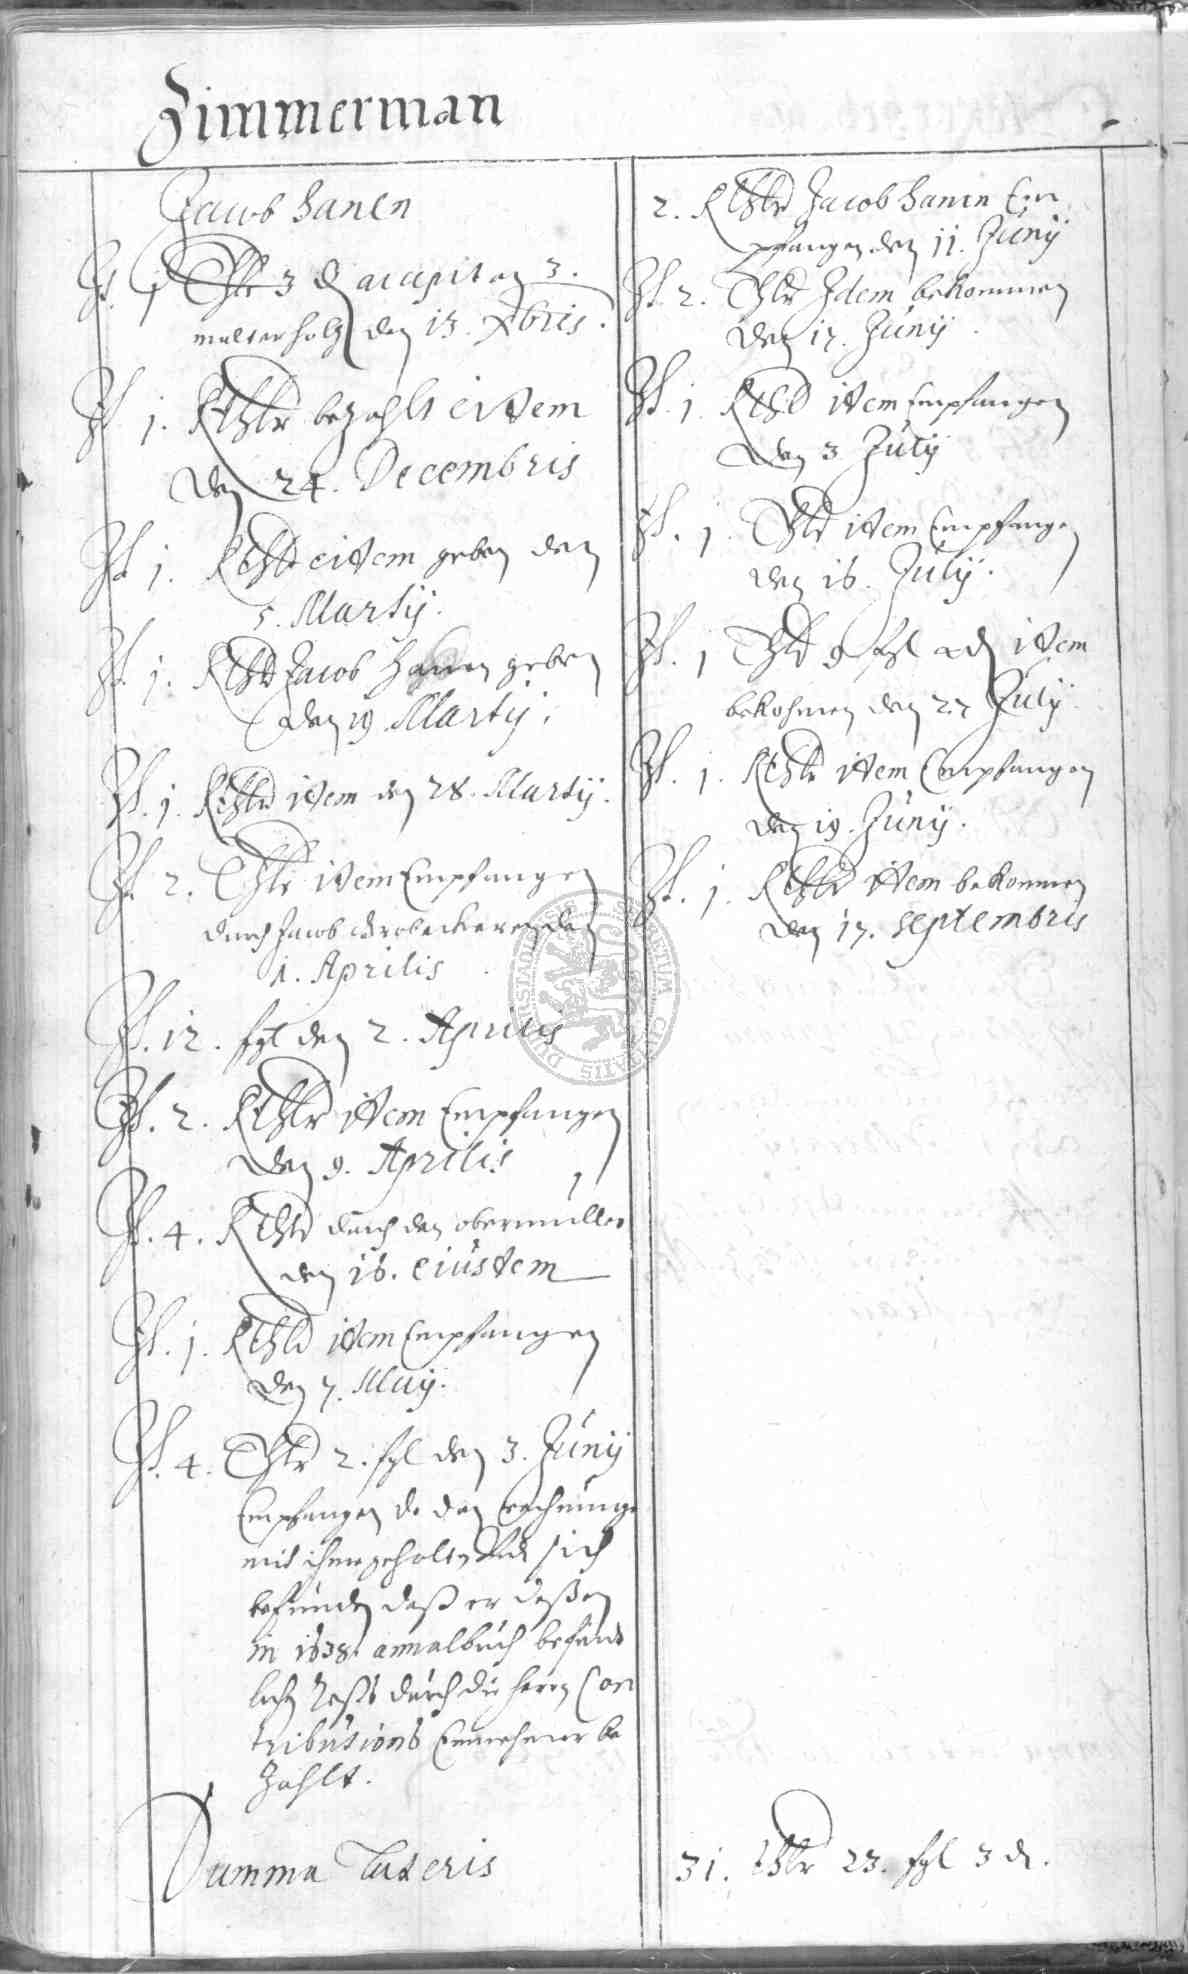 Zimmerman
Jacob Hanen
It. 1 Thlr 3 d accepit an 3.
malter holtz den 13. Xbris.
It. 1. Rthlr bezahlt eidem
den 24. Decembris
It. 1. Rthlr eidem geben den
5. Martij.
It. 1. Rthlr Jacob Hanen geben
den 19 Martij.
It. 1. Rthlr idem den 28. Martij.
It. 2. Thlr idem Empfangen
durch Jacob den
1. Aprilis
It. 12. fgl den 2. Aprilis
It. 2. Rthlr idem Empfangen
den 9. Aprilis
It. 4. Rthlr durch den obermüller
den 16. eiusdem
It. 1. Rthlr idem Empfangen
den 7. Maij.
It. 4. Thlr 2. fgl den 3. Junij
Empfangen do den rechnung
mit ihme gehalten sich
befunden daß er deßen
in 1638. annalbuch befindt
lichen Rest durch die herrn Con
tributions Einnehmer be
zahlt.
2. Rthlr Jacob Hanen Em
pfangen den 11. Junij
It. 2. Thlr Idem bekommen
den 17. Junij
It. 1. Rthlr idem Empfangen
den 3 Julij
It. 1. Thlr idem Empfangen
den 16. Julij.
It. 1 Thlr 9 fgl idem
bekohmen den 27 Julij.
It. 1. Rthlr idem Empfangen
den 19. Junij.
It. 1. Rthlr idem bekommen
den 17. Septembris
Summa Lateris 31. Thlr 23. fgl 3 d.
SECRETUM CIVITATIS DUDERSTADENSIS